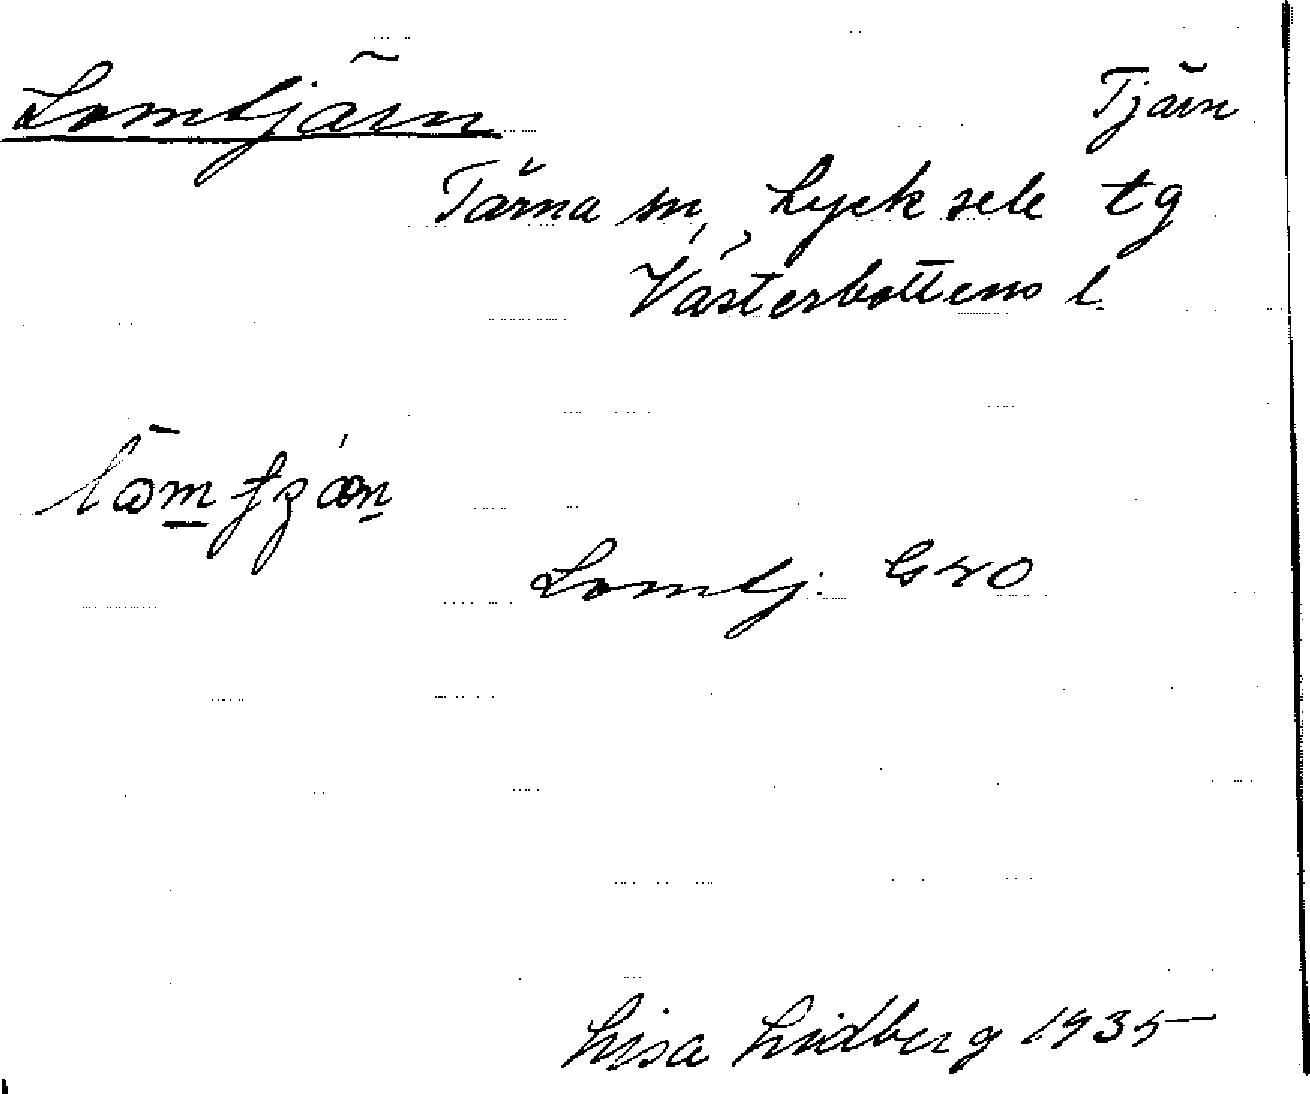 Lomtjärn Tjärn
Tärna sn, Lycksele tg
Västerbottens l.
Lomtj. GEO
Lisa Lidberg 1935